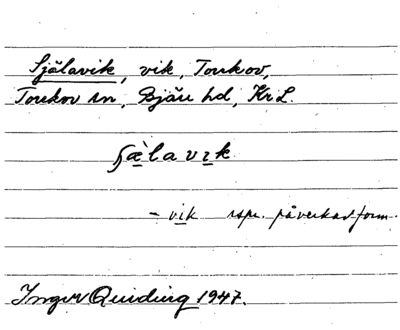 Själavik, vik, Torekov,
Torekov sn, Bjäre hd, Kr L.
ʃæ̀lavɪk
- vik rspr. påverkad form.
Ingvor Quiding 1947.